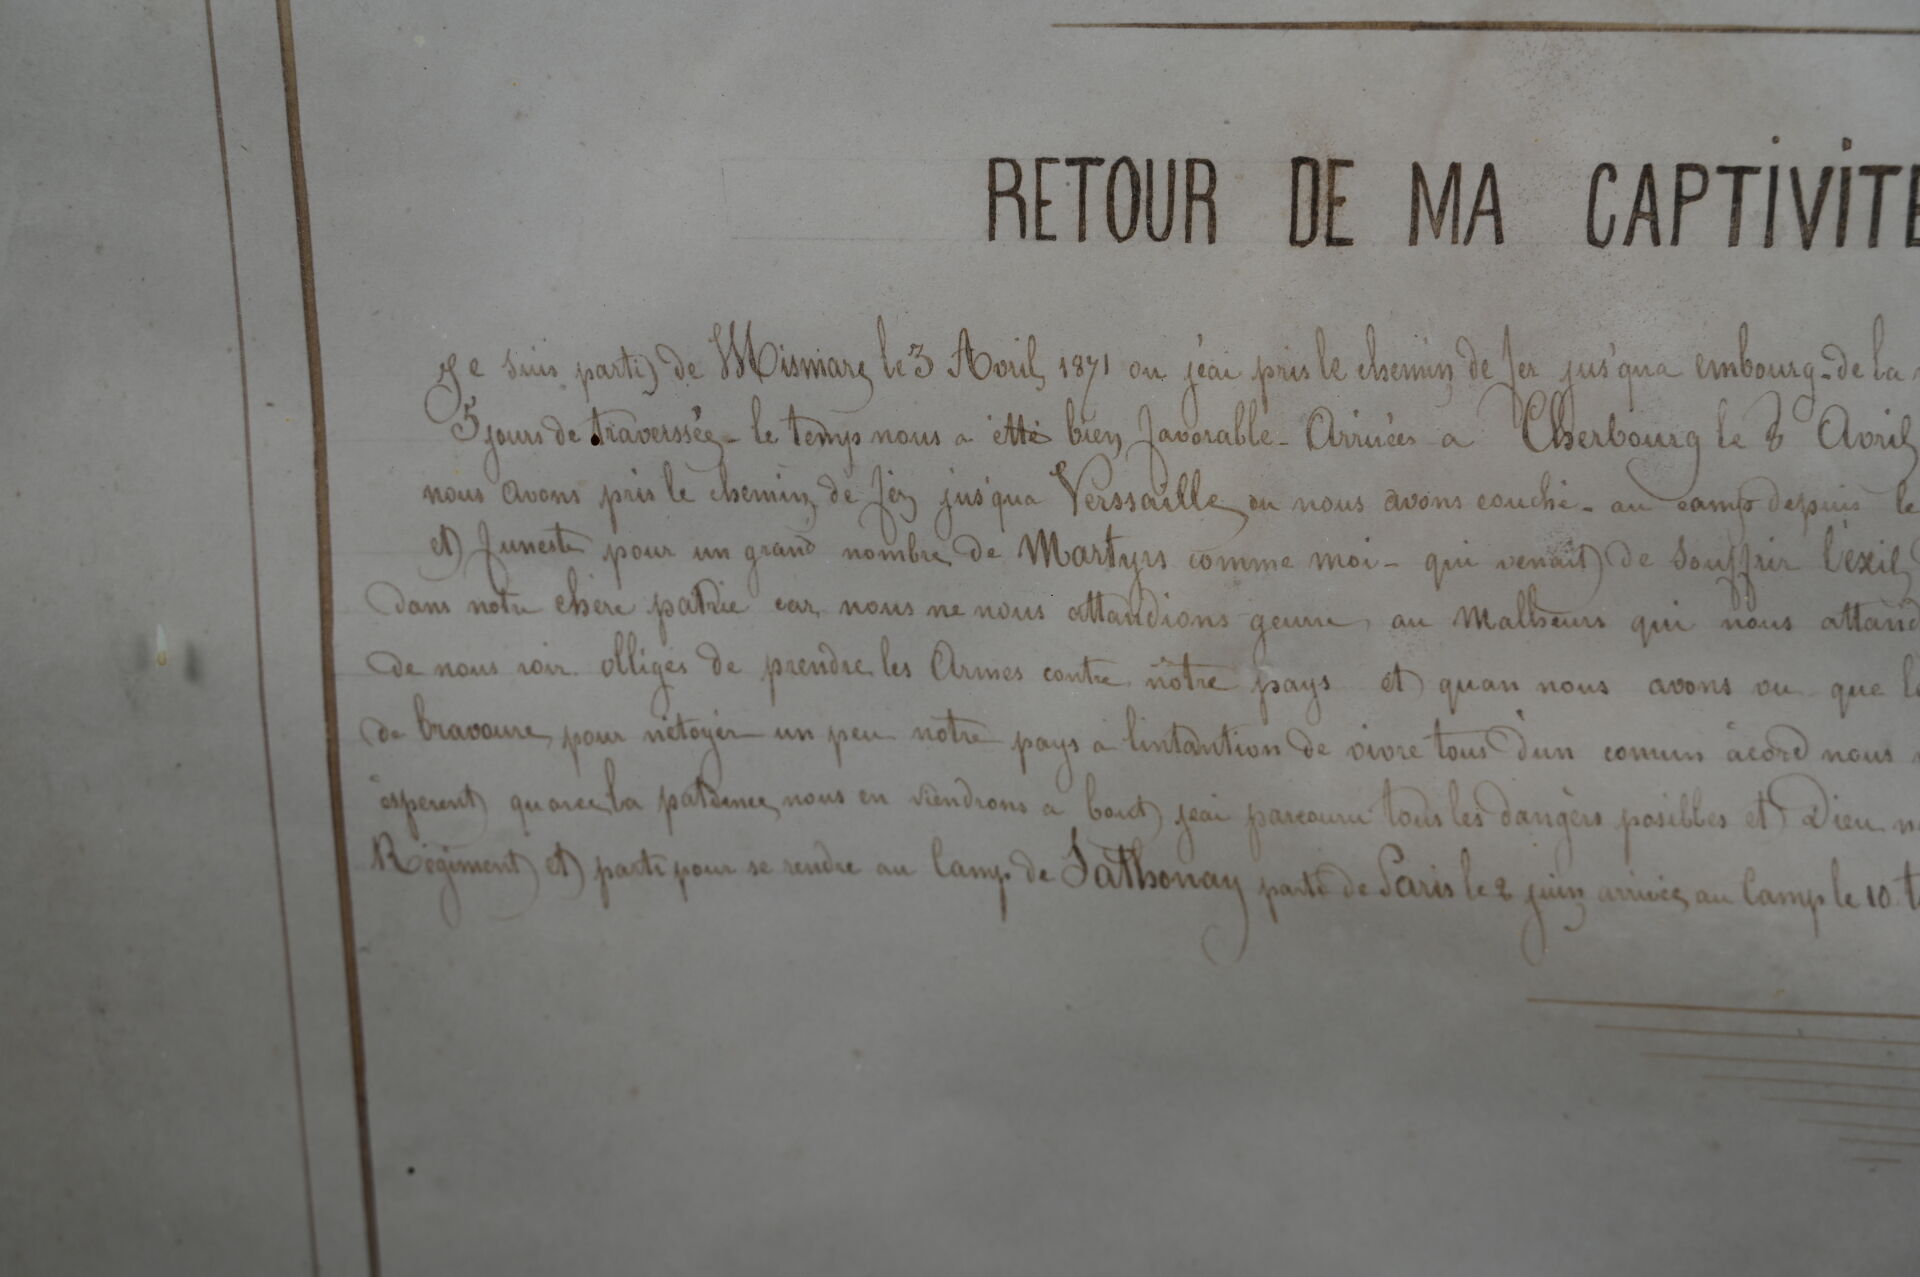 RETOUR DE MA CAPTIVITÉ
Je suis parti de Mismare le 3 Avril 1871 ou j'eai pris le chemin de fer jus'qua embourg - de la
5 jours de traverssée - le temp nous a étté bien favorable - Arrivées a Cherbourg le 8 Avril
nous avons pris le chemin de fer jus'qua Verssaille ou nous avons couché - au camp depuis le
et funeste pour un grand nombre de Martyrs comme moi - qui venait de souffrir l'exil
dans notre chere patrie car nous ne nous attandions geurre au Malheurs qui nous attand
de nous voir obligés de prendre les Armes contre nôtre pays et quan nous avons vu que le
de bravoure pour nétoyér un peu notre pays a lintantion de vivre tous d'un comun acord nous
ésperent quavec la patience nous en viendrons a bout jeai parcouru tous les dangérs posibles et Dieu
Régiment et parti pour se rendre au Camp de Sathonay parti de Paris le 2 juin arrivée au Camp le 10